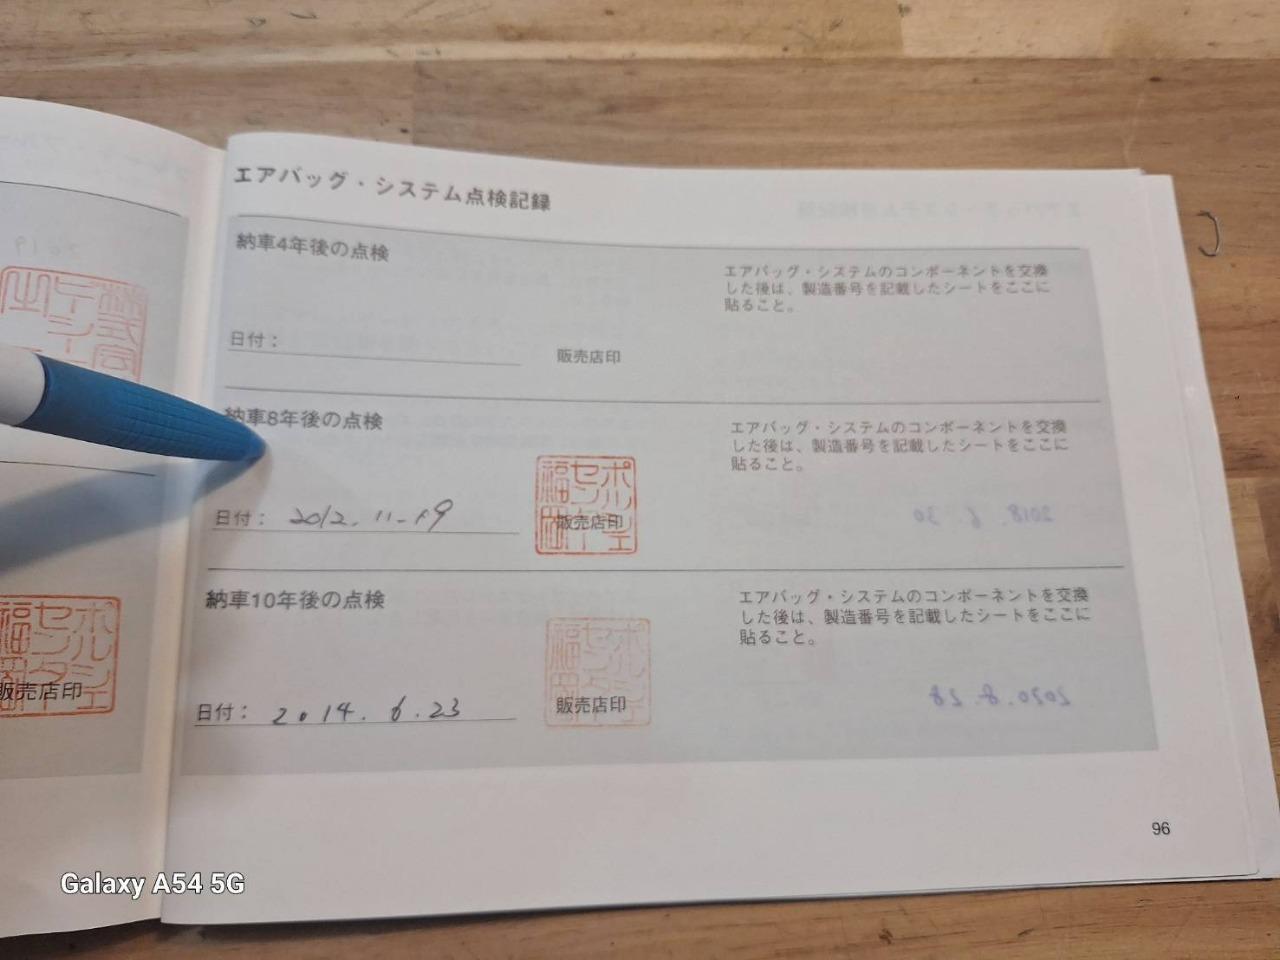 エアバッグ・システム点検記録
納車4年後の点検
エアバッグ・システムのコンポーネントを交換
した後は、製造番号を記載したシートをここに
貼ること。
日付：
販売店印
納車8年後の点検
エアバッグ・システムのコンポーネントを交換
した後は、製造番号を記載したシートをここに
貼ること。
日付： 2012.11-19
販売店印
ポルシェ
センター
福岡
納車10年後の点検
エアバッグ・システムのコンポーネントを交換
した後は、製造番号を記載したシートをここに
貼ること。
日付： 2014.6.23
販売店印
ポルシェ
センター
福岡
販売店印
ポルシェ
センター
福岡
96
Galaxy A54 5G